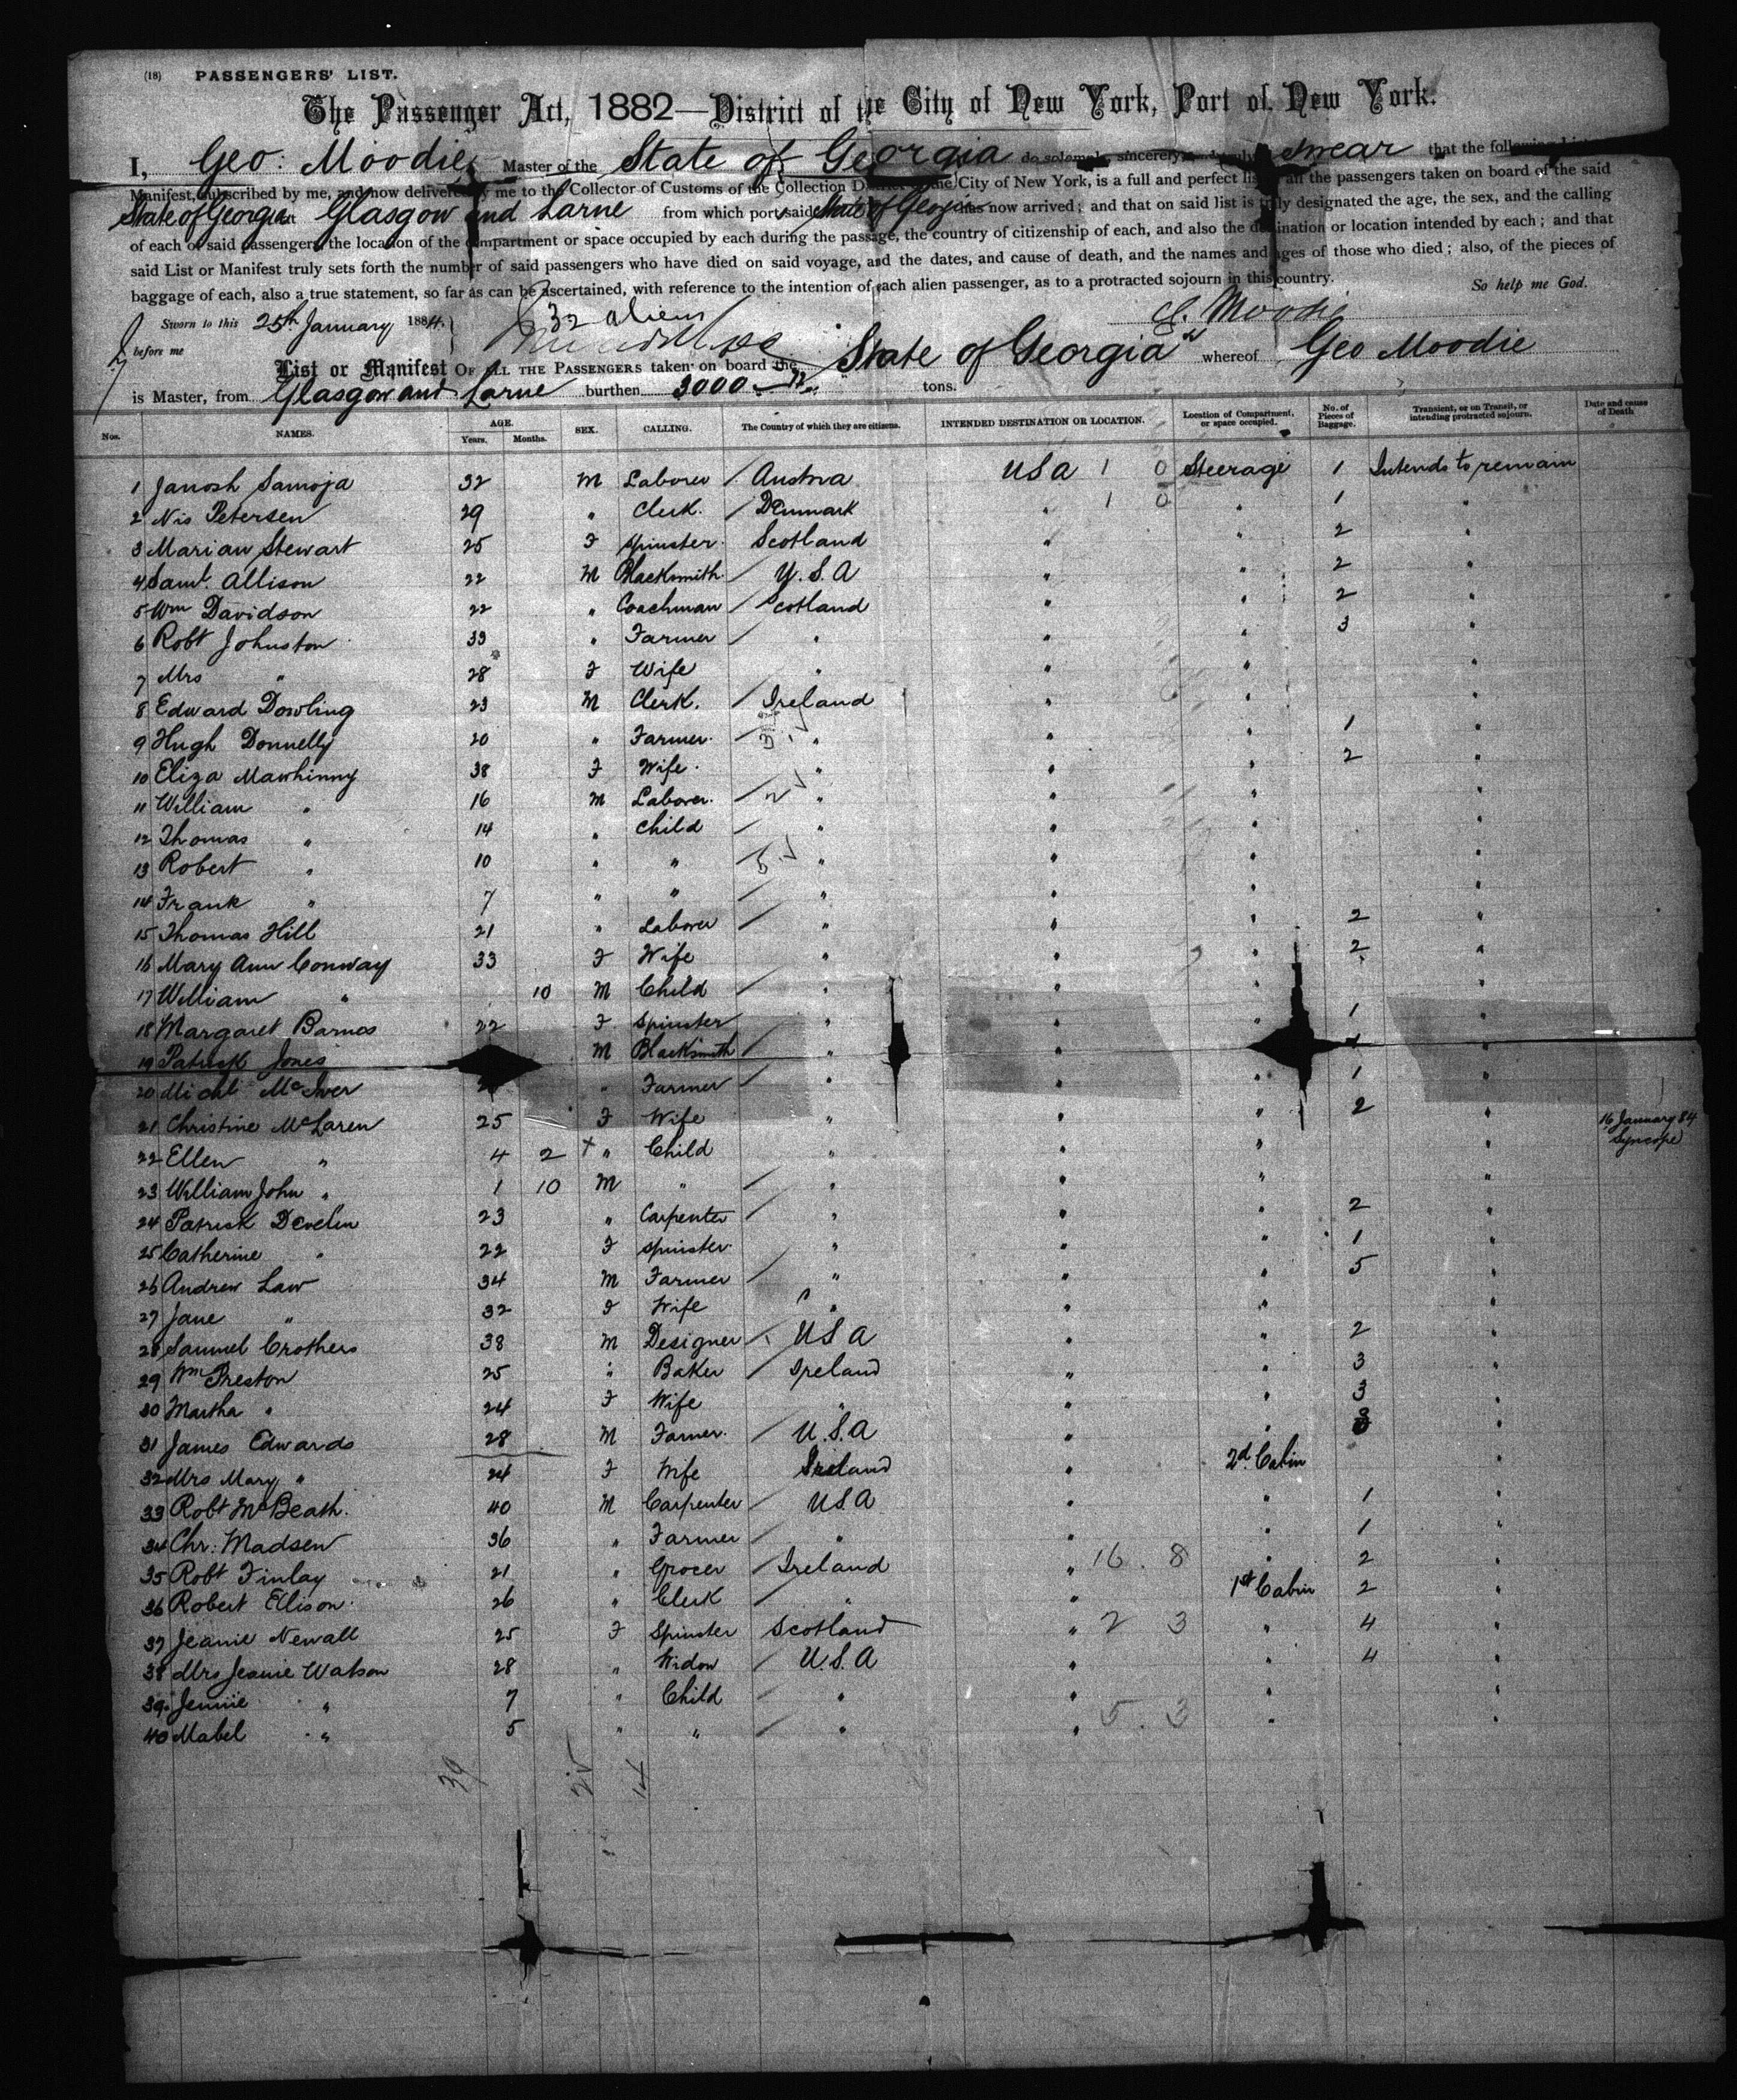 (18) PASSENGERS' LIST.
The Passenger Act, 1882—District of the City of New York, Port of New York.
I, Geo: Moodie Master of the State of Georgia do solemnly, sincerely and truly swear that the following List
Manifest, subscribed by me, and now delivered by me to the Collector of Customs of the Collection District of the City of New York, is a full and perfect list of all the passengers taken on board of the said
State of Georgia at Glasgow and Larne from which port said State of Georgia has now arrived; and that on said list is truly designated the age, the sex, and the calling
of each of said passengers, the location of the compartment or space occupied by each during the passage, the country of citizenship of each, and also the destination or location intended by each; and that
said List or Manifest truly sets forth the number of said passengers who have died on said voyage, and the dates, and cause of death, and the names and ages of those who died; also, of the pieces of
baggage of each, also a true statement, so far as can be ascertained, with reference to the intention of each alien passenger, as to a protracted sojourn in this country. So help me God.
Sworn to this 25th January 1884. 32 aliens G. Moodie
before me
List or Manifest OF ALL THE PASSENGERS taken on board the State of Georgia whereof Geo Moodie
is Master, from Glasgow and Larne burthen 3000 tons.
Nos. NAMES. AGE. Years. Months. SEX. CALLING. The Country of which they are citizens. INTENDED DESTINATION OR LOCATION. Location of Compartment, or space occupied. No. of Pieces of Baggage. Transient, or on Transit, or intending protracted sojourn. Date and cause of Death
1 Janosh Samoja 32 M Laborer / Austria USA 1 0 Steerage 1 Intends to remain
2 Nis Petersen 29 " Clerk. / Denmark " 1 0 " 1 "
3 Marian Stewart 25 F Spinster. Scotland " " 2 "
4 Saml. Allison 22 M Blacksmith / U.S.A " " 2 "
5 Wm Davidson 22 " Coachman / Scotland " " 2 "
6 Robt Johnston 33 " Farmer / " " " 3 "
7 Mrs " 28 F Wife " " " "
8 Edward Dowling 23 M Clerk. / Ireland " " "
9 Hugh Donnelly 20 " Farmer. / " " " 1 "
10 Eliza Mawhinny 38 F Wife. " " " 2 "
11 William " 16 M Laborer. / " " " "
12 Thomas " 14 " Child / " " " "
13 Robert " 10 " " / " " " "
14 Frank " 7 " " / " " " "
15 Thomas Hill 21 " Laborer / " " " 2 "
16 Mary Ann Conway 33 F Wife " " " 2 "
17 William " 10 M Child / " " " "
18 Margaret Barnes 22 F Spinster " " " 1 "
19 Patrick Jones M Blacksmith / " " " 1 "
20 Michl McIver " Farmer / " " " 1 "
21 Christine McLaren 25 F Wife " " " 2 "
22 Ellen " 4 2 + " Child " " " " 16 January 84 Syncope
23 William John " 1 10 M " / " " " "
24 Patrick Develin 23 " Carpenter / " " " 2 "
25 Catherine " 22 F Spinster " " " 1 "
26 Andrew Law 34 M Farmer / " " " 5 "
27 Jane " 32 F Wife " " " "
28 Samuel Crothers 38 M Designer / USA " " 2 "
29 Wm Preston 25 " Baker / Ireland " " 3 "
30 Martha " 24 F Wife " " " 3 "
31 James Edwards 28 M Farmer. / U.S.A " " "
32 Mrs Mary " 24 F Wife Ireland " 2d. Cabin "
33 Robt McBeath. 40 M Carpenter / USA " " 1 "
34 Chr: Madsen 36 " Farmer / " " " 1 "
35 Robt Finlay 21 " Grocer / Ireland " 16. 8 " 2 "
36 Robert Ellison. 26 " Clerk / " " 1st Cabin 2 "
37 Jeanie Newall 25 F Spinster Scotland " 2 3 " 4 "
38 Mrs Jeanie Watson 28 " Widow / U.S.A " " 4 "
39 Jennie " 7 " Child / " " " "
40 Mabel " 5 " " / " " 5. 3 " "
39 25 14